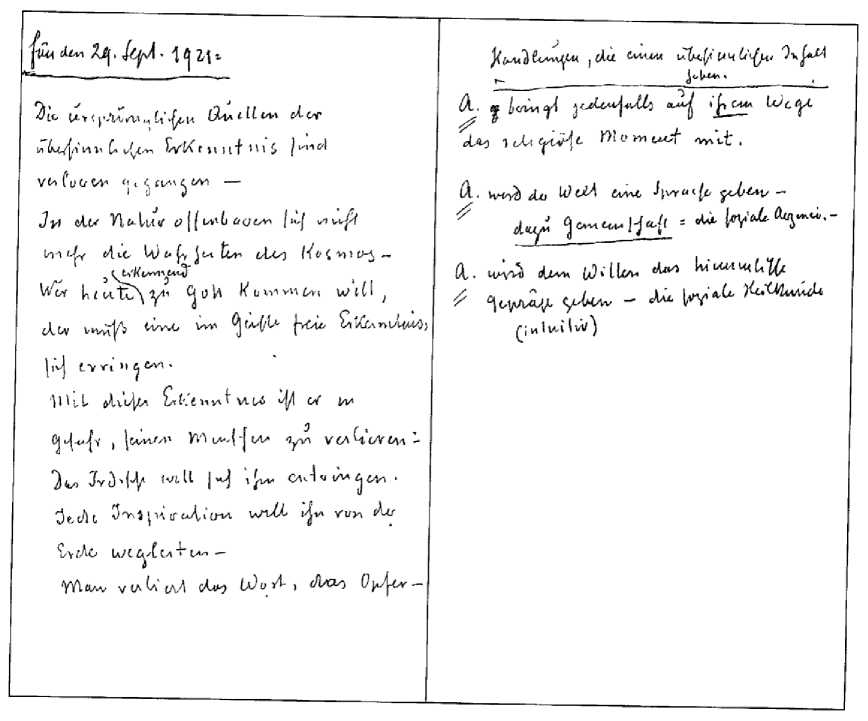 Für den 29. Sept. 1921:
Die ursprünglichen Quellen der
übersinnlichen Erkenntnis sind
verloren gegangen –
In der Natur offenbaren sich nicht
mehr die Wahrheiten des Kosmos –
erkennend
Wer heute zu Gott kommen will,
der muß eine im Geiste freie Erkenntnis
sich erringen.
Mit dieser Erkenntnis ist er in
Gefahr, seinen Menschen zu verlieren:
Das Irdische will sich ihm entringen.
Jede Inspiration will ihn von der
Erde wegleiten –
Man verliert das Wort, das Opfer –
Handlungen, die einen übersinnlichen Inhalt
haben.
A. bringt jedenfalls auf ihrem Wege
das religiöse Moment mit.
A. wird der Welt eine Sprache geben –
dazu Gemeinschaft = die soziale
A. wird dem Willen das himmlische
Gepräge geben – die soziale Heilkunde
(intuitiv)